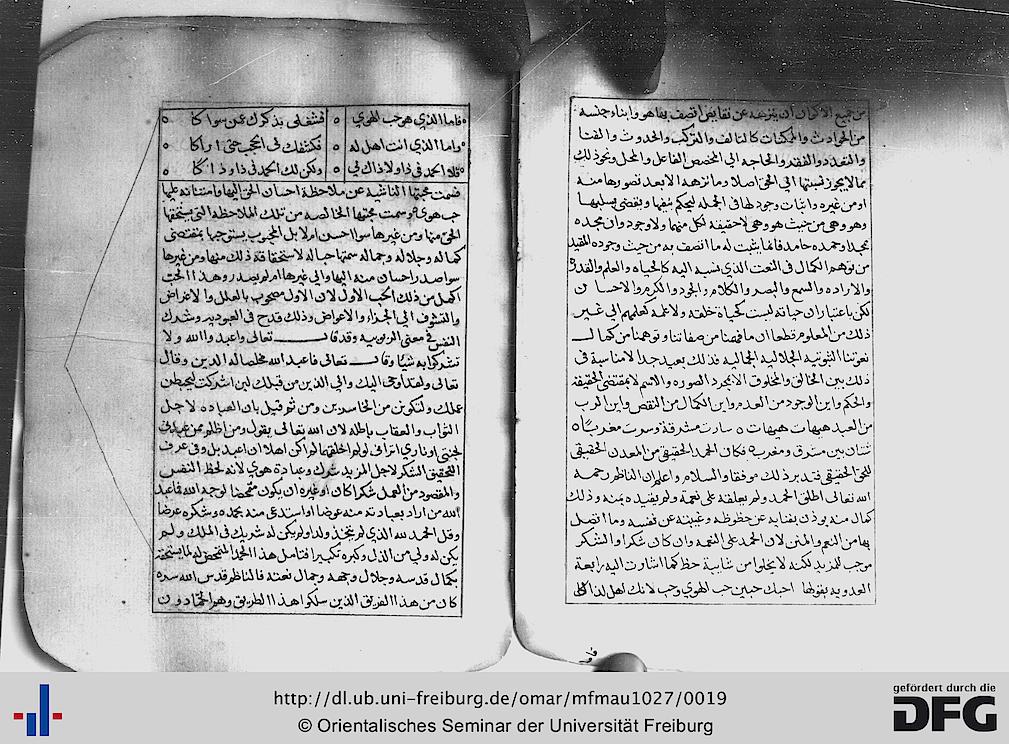 من جميع الاكوان ان يتنزه عن نقايض اتصف بها هو وابناء جنسه
من الحوادث والممكنات كالتاليف والتركيب والحدوث والفنا
والتعدد والفقد والحاجه الي المخصص الفاعل والمحل ونحو ذلك
مما لا يجوز نسبتها الي الحق اصلا وما نزهه الا بعد تصورها منه
او من غيره واثبات وجود لها في الجمله ليحكم بنفيها ويقضي بسلبها
وهو وهي من حيث هو وهي لا حقيقة لكل منهما ولا وجود وان مجده
بجد او حمده حامد فانما يثبت له ما اتصف به من حيث وجوده المقيد
من توهم الكمال في النعت الذي نسبه اليه كالحياه والعلم والقدره
والاراده والسمع والبصر والكلام والجود والكرم والاحسان
لكن باعتبار ان حياته ليست كحياة خلقه ولا علمه كعلمهم الي غير
ذلك من المعلوم قطعا ان ما فهمنا من صفاتنا وتوهمنا من كمال
نعوتنا الثبوتيه الجلاليه الجماليه فذلك بعيد جدا لا مناسبة في
ذلك بين الخالق والمخلوق الا بمجرد الصوره والاسم لا بمقتضي الحقيقة
والحكم واين الوجود من العدم واين الكمال من النقص واين الرب
من العبد هيهات هيهات ٥ سارت مشرقة وسرت مغربا ٥
شتان بين مشرق ومغرب ٥ فكان الحمد الحقيقي من المعدن الحقيقي
للحق الحقيقي فتدبر ذلك موفقا والسلام واعلم ان الناظم رحمه
الله تعالى اطلق الحمد ولم يعلقه على نعمة ولم يقيده بمنه وذلك
كمال منه يوذن بفنايه عن حظوظه وغيبته عن نفسه وما اتصل
بها من النعم والمنن لان الحمد على النعمه وان كان شكرا والشكر
موجب للمزيد لكنه لا يخلوا من شايبة حظ كما اشارت اليه رابعة
العدويه بقولها احبك حبين حب الهوي وحب لانك اهل لذاكا
فاما
فاما الذي هو حب الهوي ٥ فشغلي بذكرك عن سواكا ٥
واما الذي انت اهل له ٥ فكشفك لي الحجب حتى اراكا ٥
فلا الحمد في ذا ولا ذاك لي ٥ ولكن لك الحمد في ذا وذاكا ٥
فسمت محبتها الناشية عن ملاحظة احسان الحق اليها وامتنانه عليها
حب هوي وسمت محبتها الخالصه من تلك الملاحظه التي يستحقها
الحق منها ومن غيرها سوا احسن ام لا بل المحبوب يستوجبها بمقتضى
كماله وجلاله وجماله سمتها حبا له لاستحقاقه ذلك منها ومن غيرها
سوا صدر احسان منه اليها والي غيرها ام لم يصدر وهذا الحب
اكمل من ذلك الحب الاول لان الاول مصحوب بالعلل والاغراض
والتشوف الي الجزاء والاعواض وذلك قدح في العبوديه وشرك
النفس في معني الربوبيه وقد قال تعالى واعبدوا الله ولا
تشركوا به شيا وقال تعالى فاعبد الله مخلصا له الدين وقال
تعالى ولقد اوحي اليك والي الذين من قبلك لين اشركت ليحبطن
عملك ولتكونن من الخاسرين ومن ثم قيل بان العباده لاجل
الثواب والعقاب باطله لان الله تعالى يقول ومن اظلم ممن عبدني
لجنتي او ناري اتراني لو لم اخلقهما لم اكن اهلا ان اعبد بل وفي عرف
التحقيق الشكر لاجل المزيد شرك وعبادة هوي لانه لحظ النفس
والمقصود من العمل شكرا كان او غيره ان يكون متمحضا لوجه الله فاعبد
الله من اراد بعبادته منه عوضا او استدعى منه بحمده وشكره عرضا
وقل الحمد لله الذي لم يتخذ ولدا ولم يكن له شريك في الملك ولم
يكن له ولي من الذل وكبره تكبيرا فتامل هذا الحمد المتمحض له لما يستحقه
بكمال قدسه وجلال وجهه وجمال نعته فالناظم قدس الله سره
كان من هذا الفريق الذين سلكوا هذا الطريق وهم الحمادون
http://dl.ub.uni-freiburg.de/omar/mfmau1027/0019
© Orientalisches Seminar der Universität Freiburg
gefördert durch die
DFG